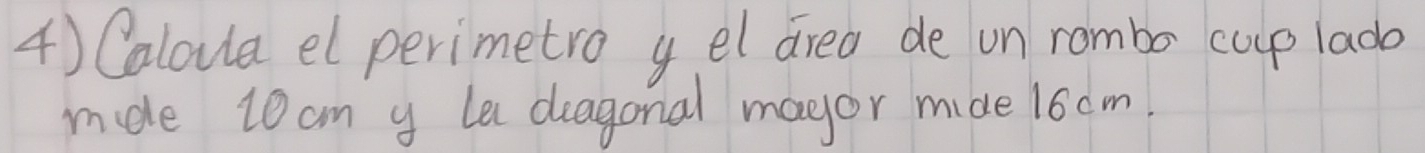 4) Calcula el perimetro y el área de un rombo cuyo lado
mide 10 cm y la diagonal mayor mide 16 cm.